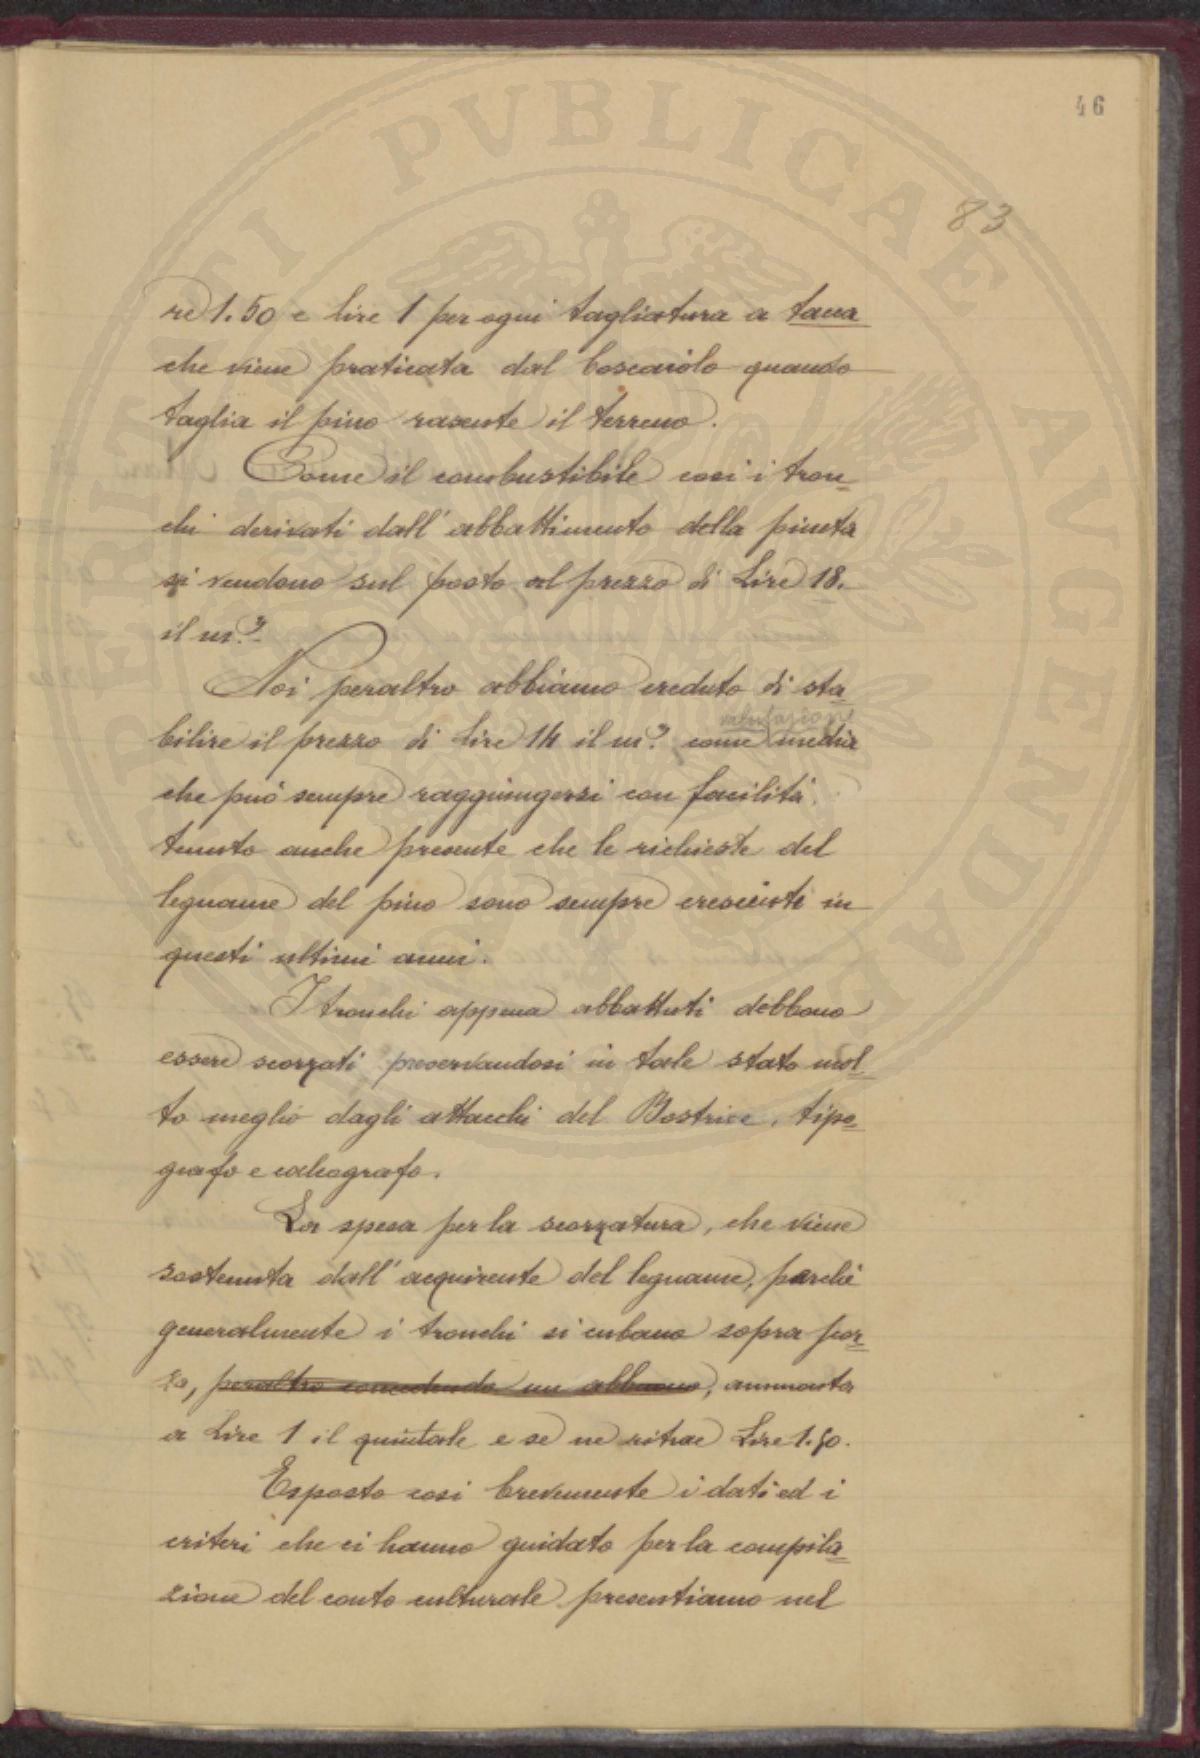 46
83
re 1.50 e lire 1 per ogni tagliatura a tacca
che viene praticata dal boscaiolo quando
taglia il pino rasente il terreno.
Come il combustibile così i tron=
chi derivati dall'abbattimento della pineta
si vendono sul posto al prezzo di Lire 18.
il m.³
Noi peraltro abbiamo creduto di sta=
valutazione
bilire il prezzo di lire 14 il m³. come media
che può sempre raggiungersi con facilità
tenuto anche presente che le richieste del
legname del pino sono sempre cresciute in
questi ultimi anni.
I tronchi appena abbattuti debbono
essere scorzati preservandosi in tale stato mol=
to meglio dagli attacchi del Bostrice, tipo=
grafo e calcografo.
La spesa per la scorzatura, che viene
sostenuta dall'acquirente del legname, perchè
generalmente i tronchi si cubano sopra scor=
za, peraltro concedendo un abbuono, ammonta
a Lire 1 il quintale e se ne ritrae Lire 1.50.
Esposto così brevemente i dati ed i
criteri che ci hanno guidato per la compila=
zione del conto culturale presentiamo nel
PERITNSI PVBLICAE AVGENDAE